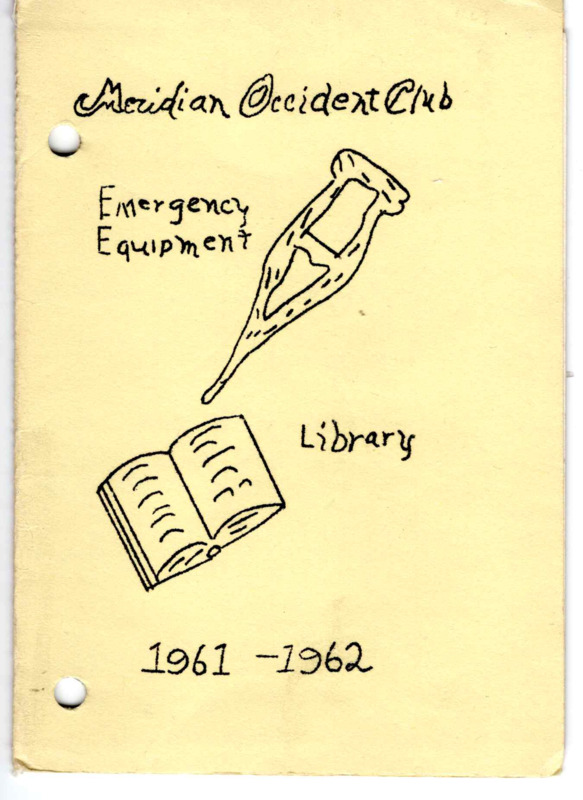 Meridian Occident Club
Emergency
Equipment
Library
1961 - 1962